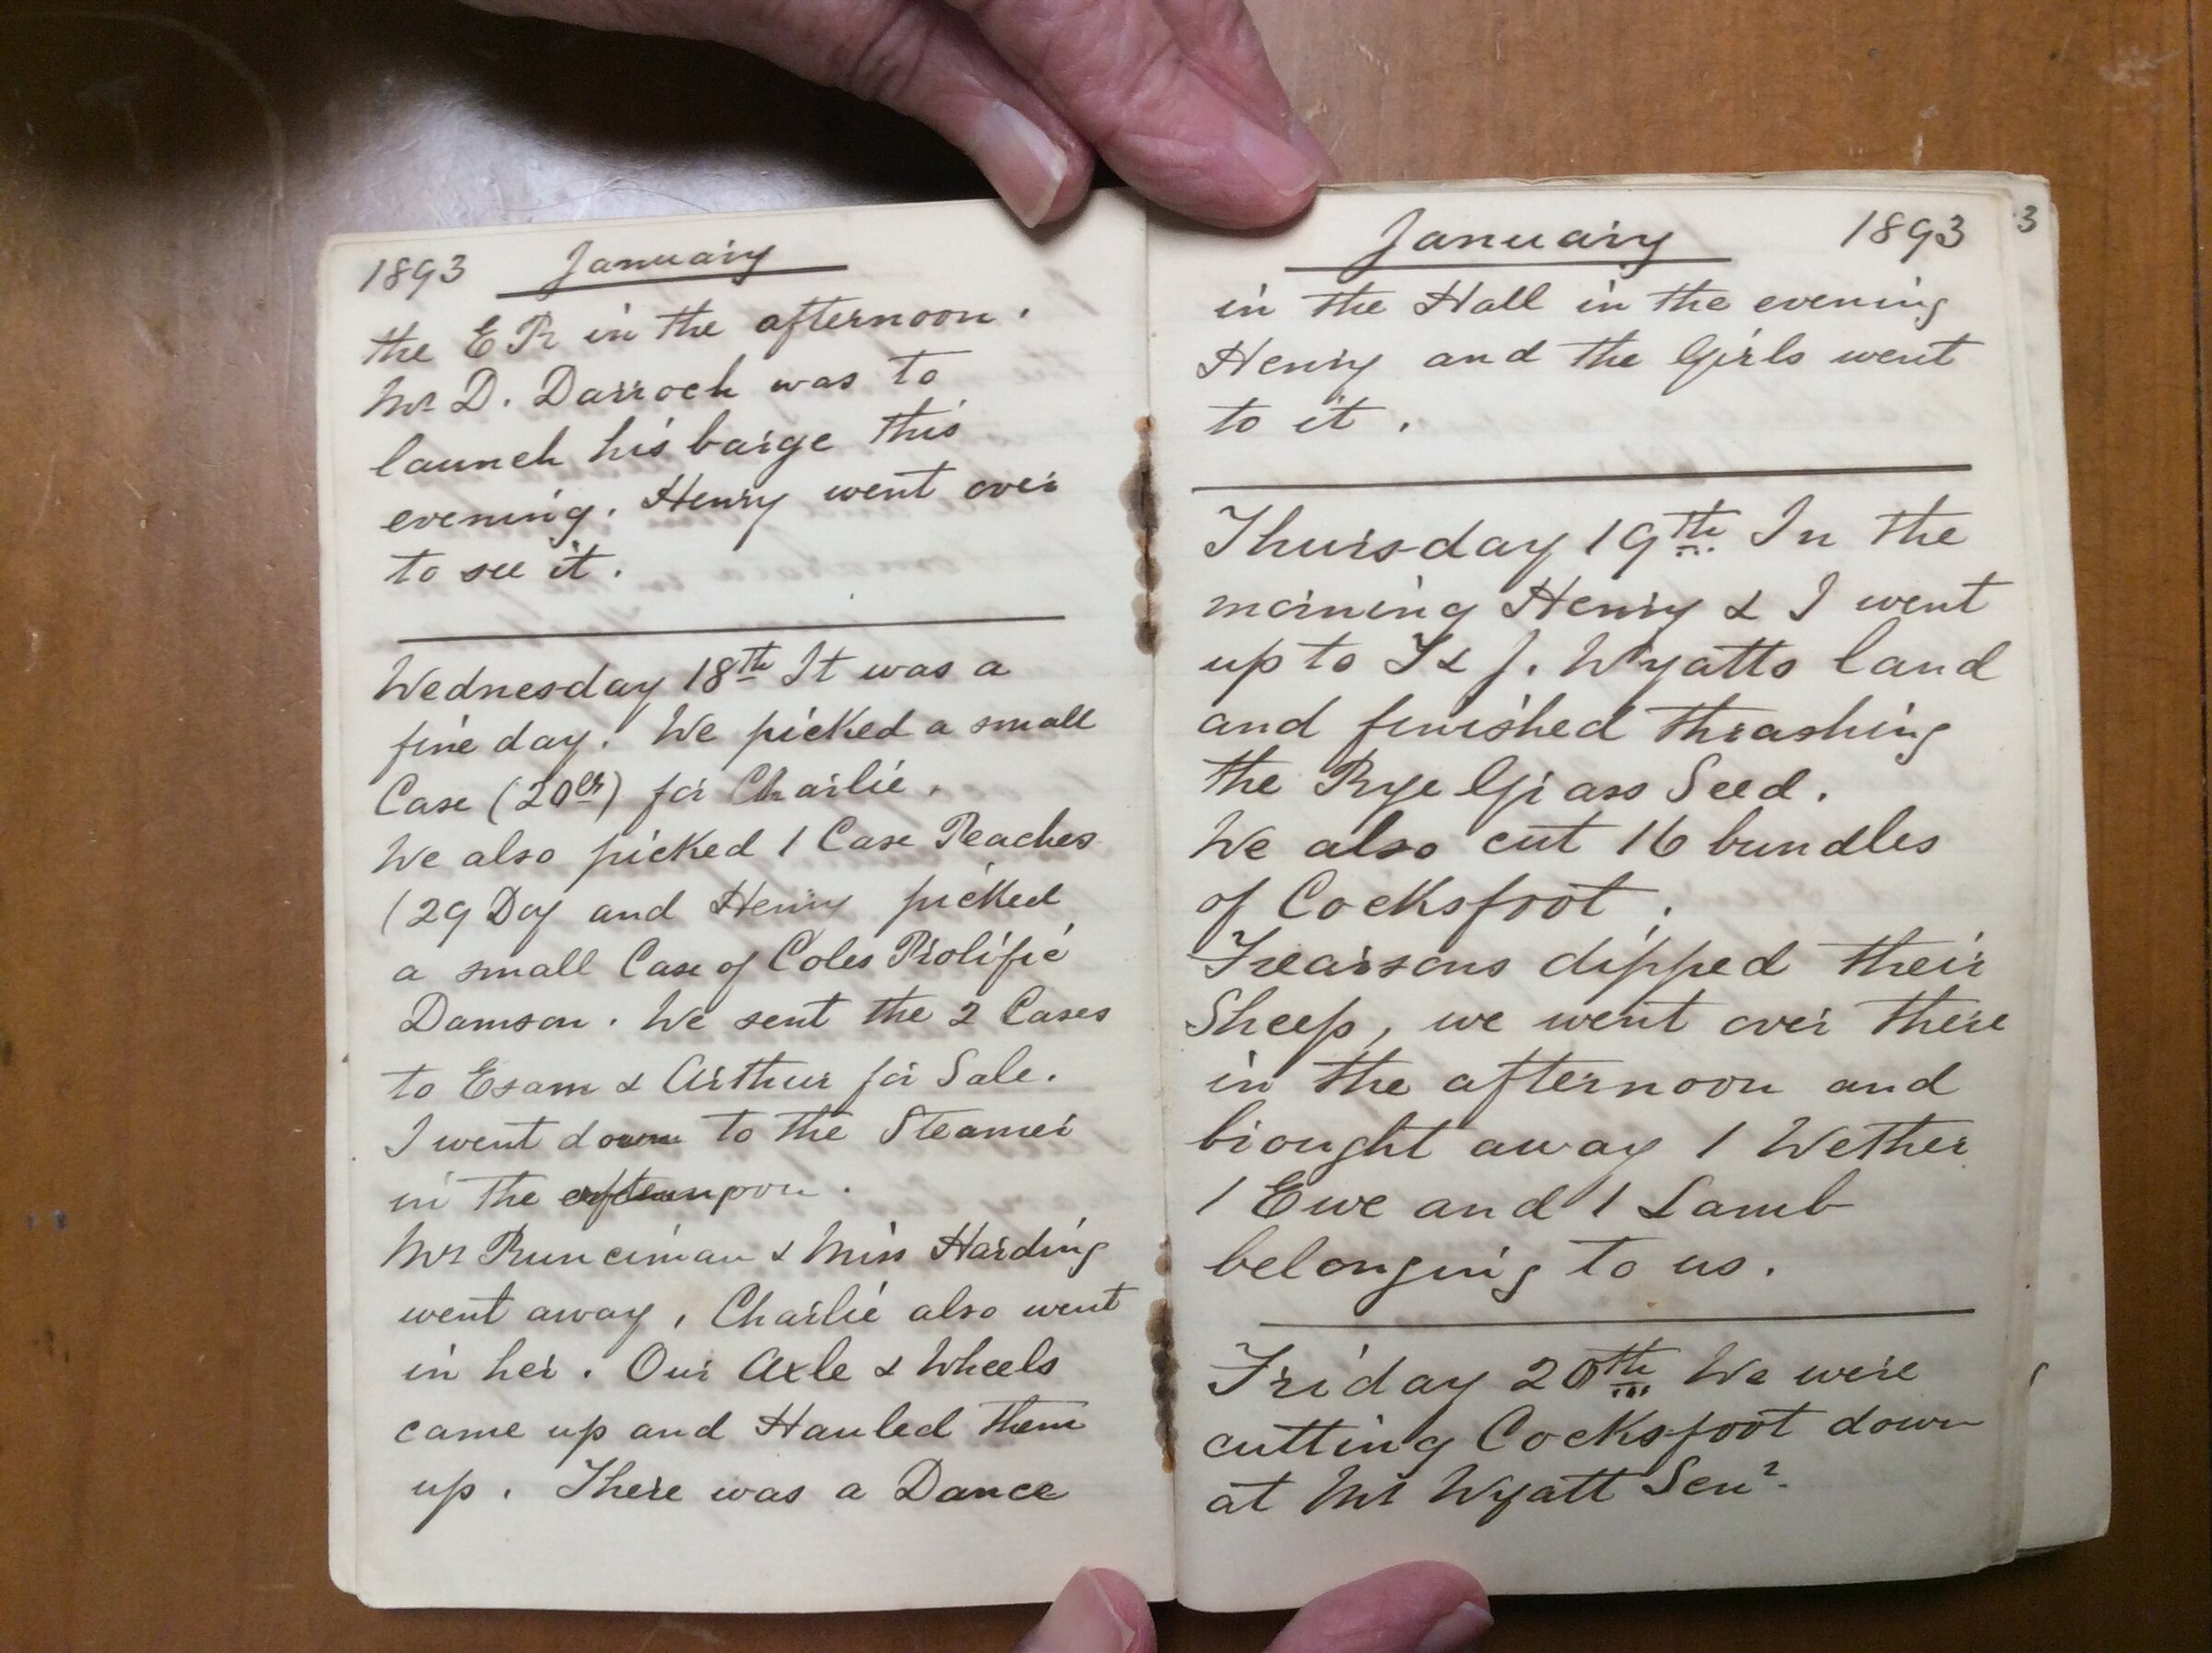 1893 January
the E R in the afternoon.
Mr D. Darroch was to
launch his barge this
evening. Henry went over
to see it.
Wednesday 18th It was a
fine day. We picked a small
Case (20lb) for Charlie.
We also picked 1 Case Peaches
(29 Doz and Henry picked
a small Case of Coles Prolific
Damson. We sent the 2 Cases
to Esam & Arthur for Sale.
I went down to the Steamer
in the afternoon.
Mr Runciman & Miss Harding
went away, Charlie also went
in her. Our Axle & Wheels
came up and Hauled them
up. There was a Dance
January 1893
in the Hall in the evening
Henry and the Girls went
to it.
Thursday 19th In the
morning Henry & I went
up to & J. Wyatts land
and finished thrashing
the Rye Grass Seed.
We also cut 16 bundles
of Cocksfoot.
Frearsons dipped their
Sheep, we went over there
in the afternoon and
brought away 1 Wether
1 Ewe and 1 Lamb
belonging to us.
Friday 20th We were
cutting Cocksfoot down
at Mr Wyatt Senr.
3